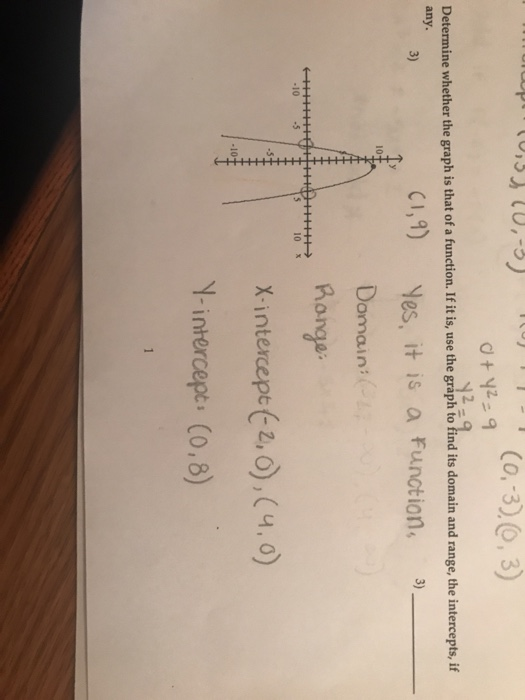 (0,-3)
0 + y² = 9
y² = 9
(0,-3),(0,3)
Determine whether the graph is that of a function. If it is, use the graph to find its domain and range, the intercepts, if
any.
3)
3)
(1,9)
Yes, it is a function.
Domain:
Range:
X-intercept (-2,0), (4,0)
Y-intercept: (0,8)
y
10
-10 -5 5 10 x
-5
-10
1